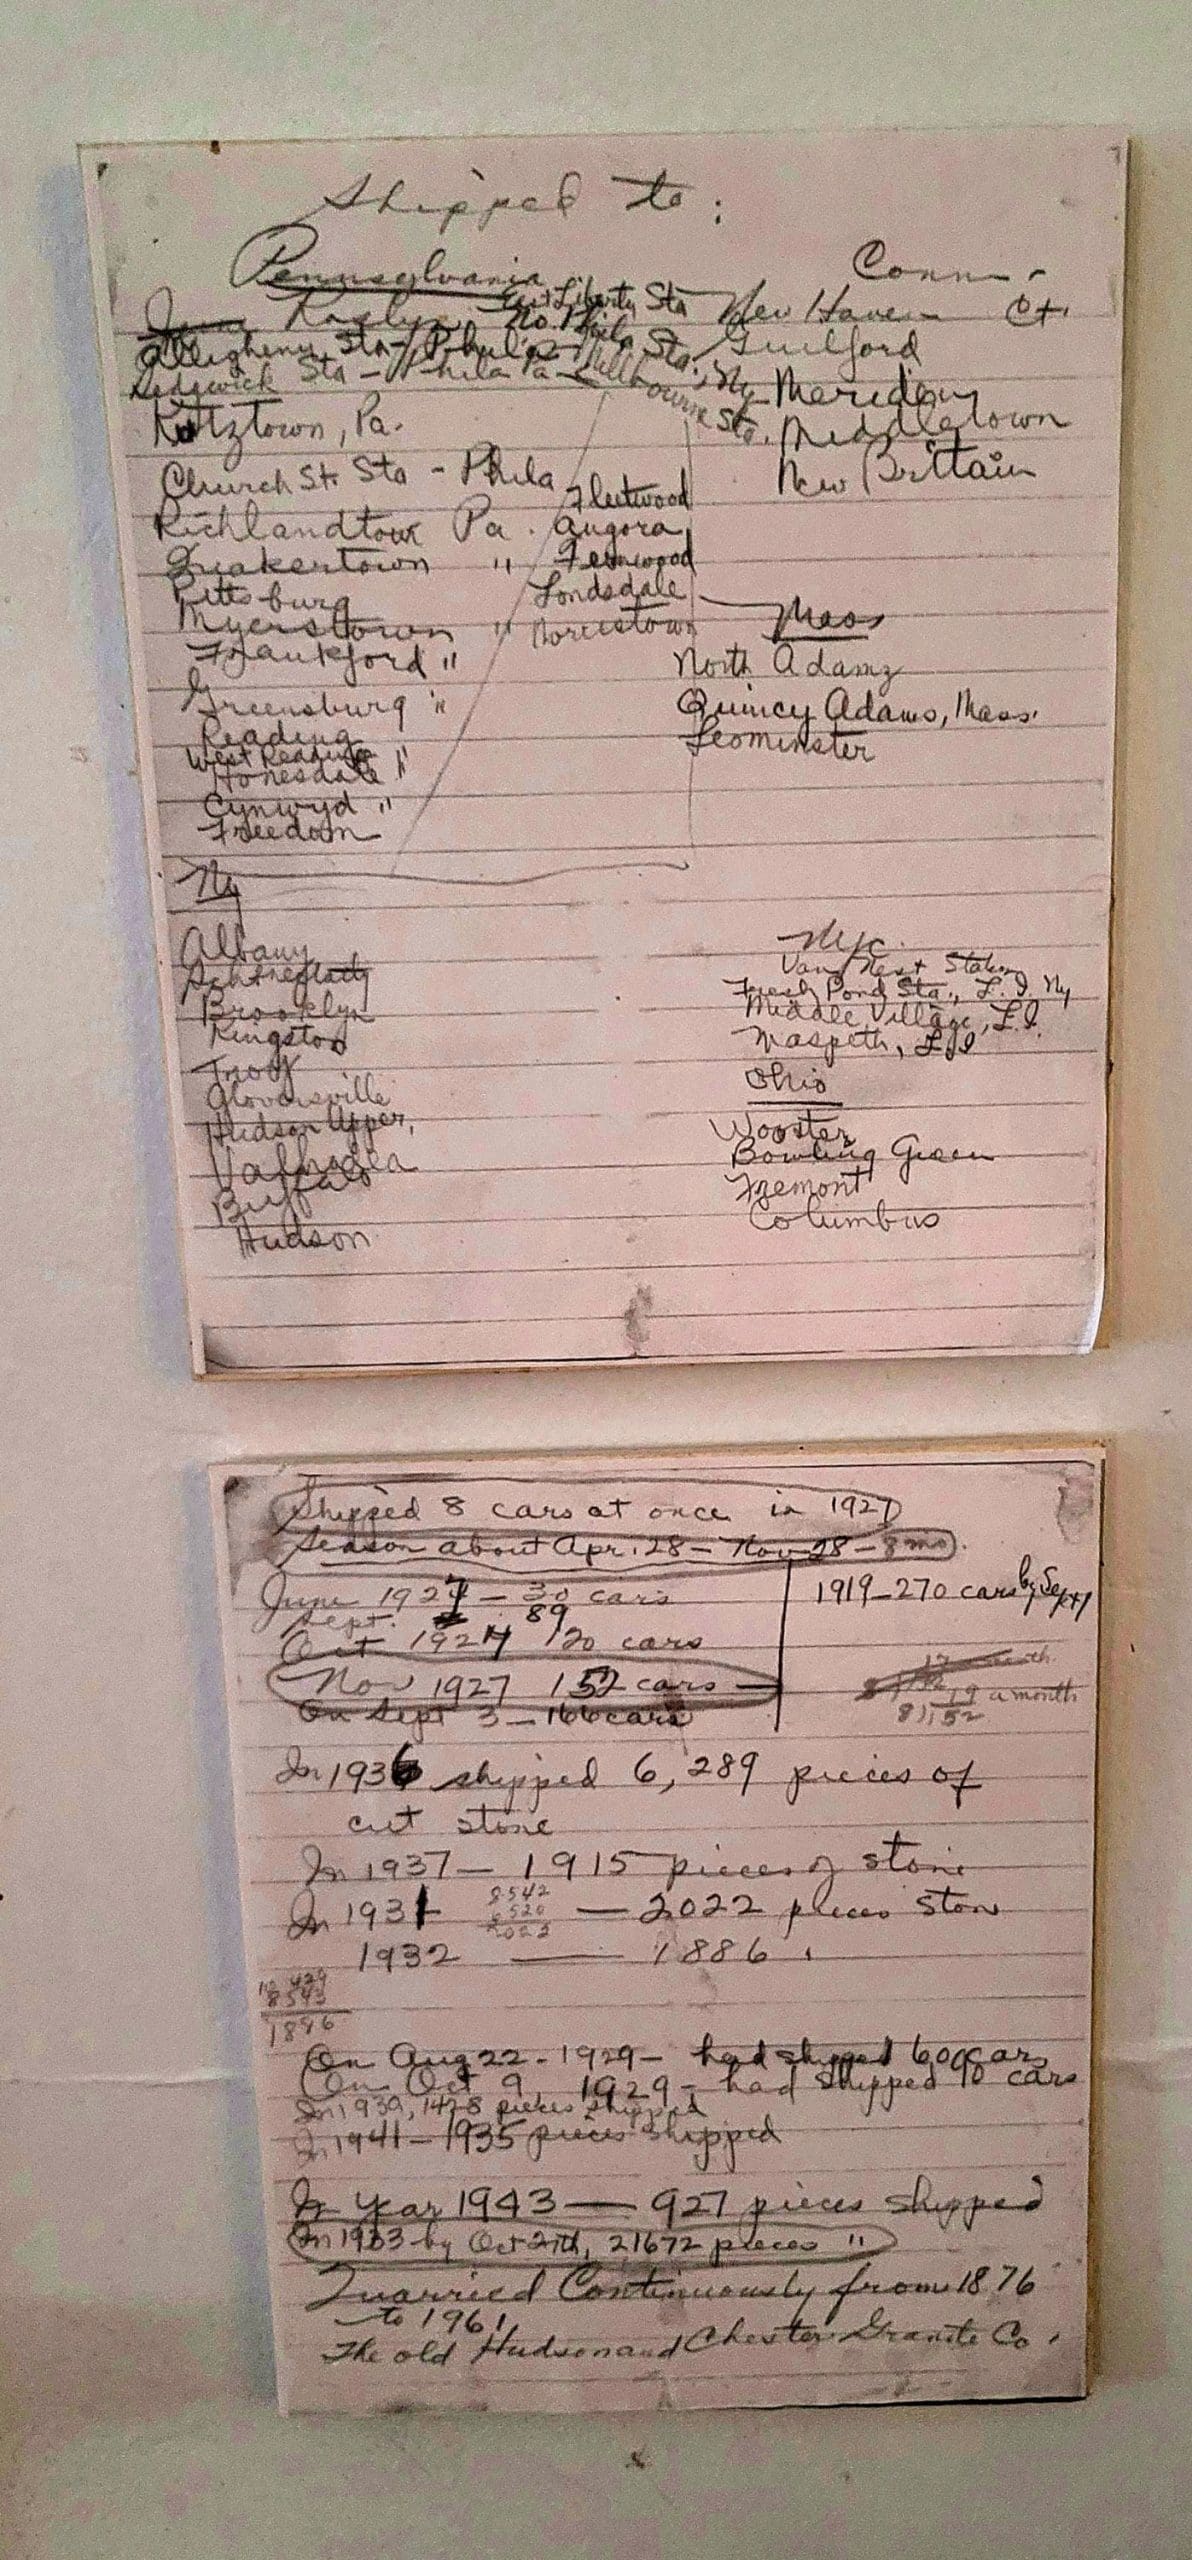 Shipped to:
Pennsylvania
East Liberty Sta
No. Phila Sta.
Allegheny Sta - Phila
Sedgwick Sta - Phila Pa - Millbourne Sta.
Kutztown, Pa.
Church St. Sta - Phila
Richlandtown Pa.
Quakertown "
Pittsburg
Myerstown "
Frankford "
Greensburg "
Reading
West Reading "
Honesdale "
Cynwyd "
Freedom
Fleetwood
Angora
Fernwood
Londsdale
Norristown
Conn -
New Haven Ct.
Guilford
Meriden
Middletown
New Brittain
Mass
North Adams
Quincy Adams, Mass.
Leominster
Ny
Albany
Schnectady
Brooklyn
Kingston
Troy
Gloversville
Hudson Upper,
Valhalla
Buffalo
Hudson
Nyc.
Van Nest Station
Fresh Pond Sta., L. I. Ny
Middle Village, L.I.
Maspeth, L.I
Ohio
Wooster
Bowling Green
Fremont
Columbus
Shipped 8 cars at once in 1927
Season about Apr. 28 - Nov 28 - 8 mo.
June 1927 - 30 cars
Sept. 89
Oct 1927 120 cars
Nov 1927 152 cars
On Sept 3 - 166 cars
1919 - 270 cars by Sept
19 a month
8)152
In 1936 shipped 6,289 pieces of
cut stone
In 1937 - 1915 pieces of stone
In 1931 - 2022 pieces stone
8542
6520
2022
1932 - 1886
10 429
8543
1886
On Aug 22 - 1929 - had shipped 60 cars
On Oct 9, 1929 - had shipped 90 cars
In 1939, 1428 pieces shipped
In 1941 - 1935 pieces shipped
In Year 1943 - 927 pieces shipped
In 1933 by Oct 27th, 21672 pieces "
Quarried Continuously from 1876
to 1961
The old Hudson and Chester Granite Co.